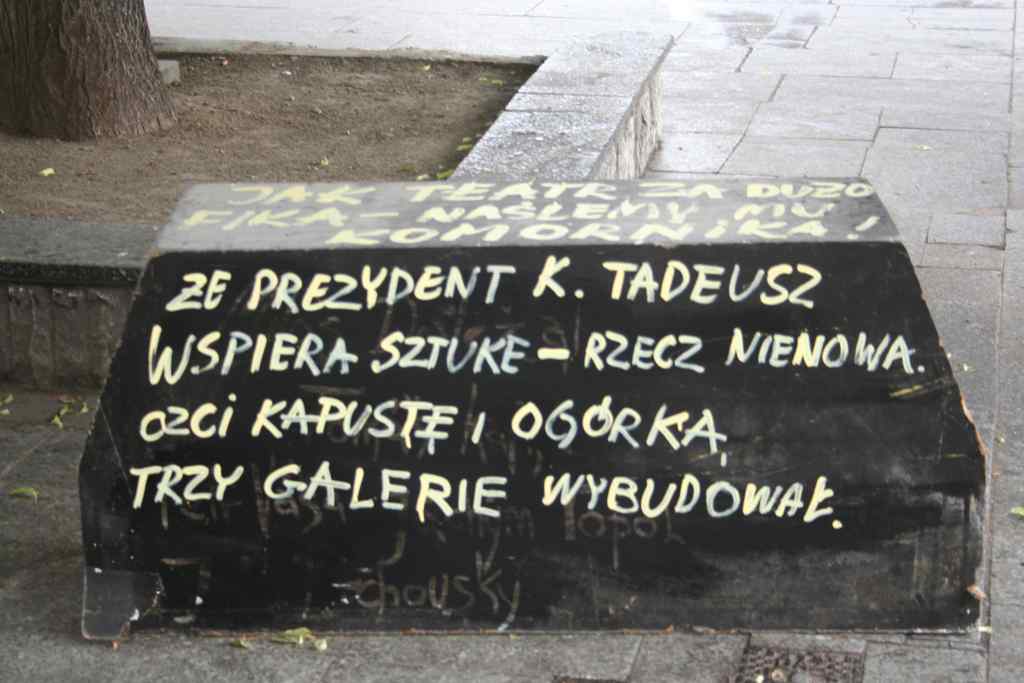 JAK TEATR ZA DUZO
FIKA - NAŚLEMY MU
KOMORNIKA!
ŻE PREZYDENT K. TADEUSZ
WSPIERA SZTUKE - RZECZ NIENOWA.
OZCI KAPUSTĘ I OGÓRKA,
TRZY GALERIE WYBUDOWAŁ.
chousky